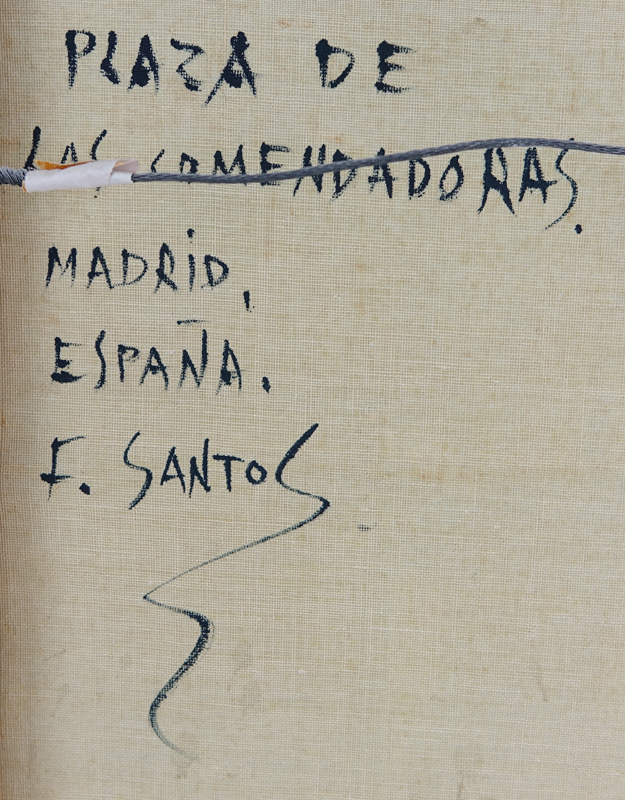 PLAZA DE
LAS COMENDADORAS.
MADRID,
ESPAÑA.
F. SANTOS